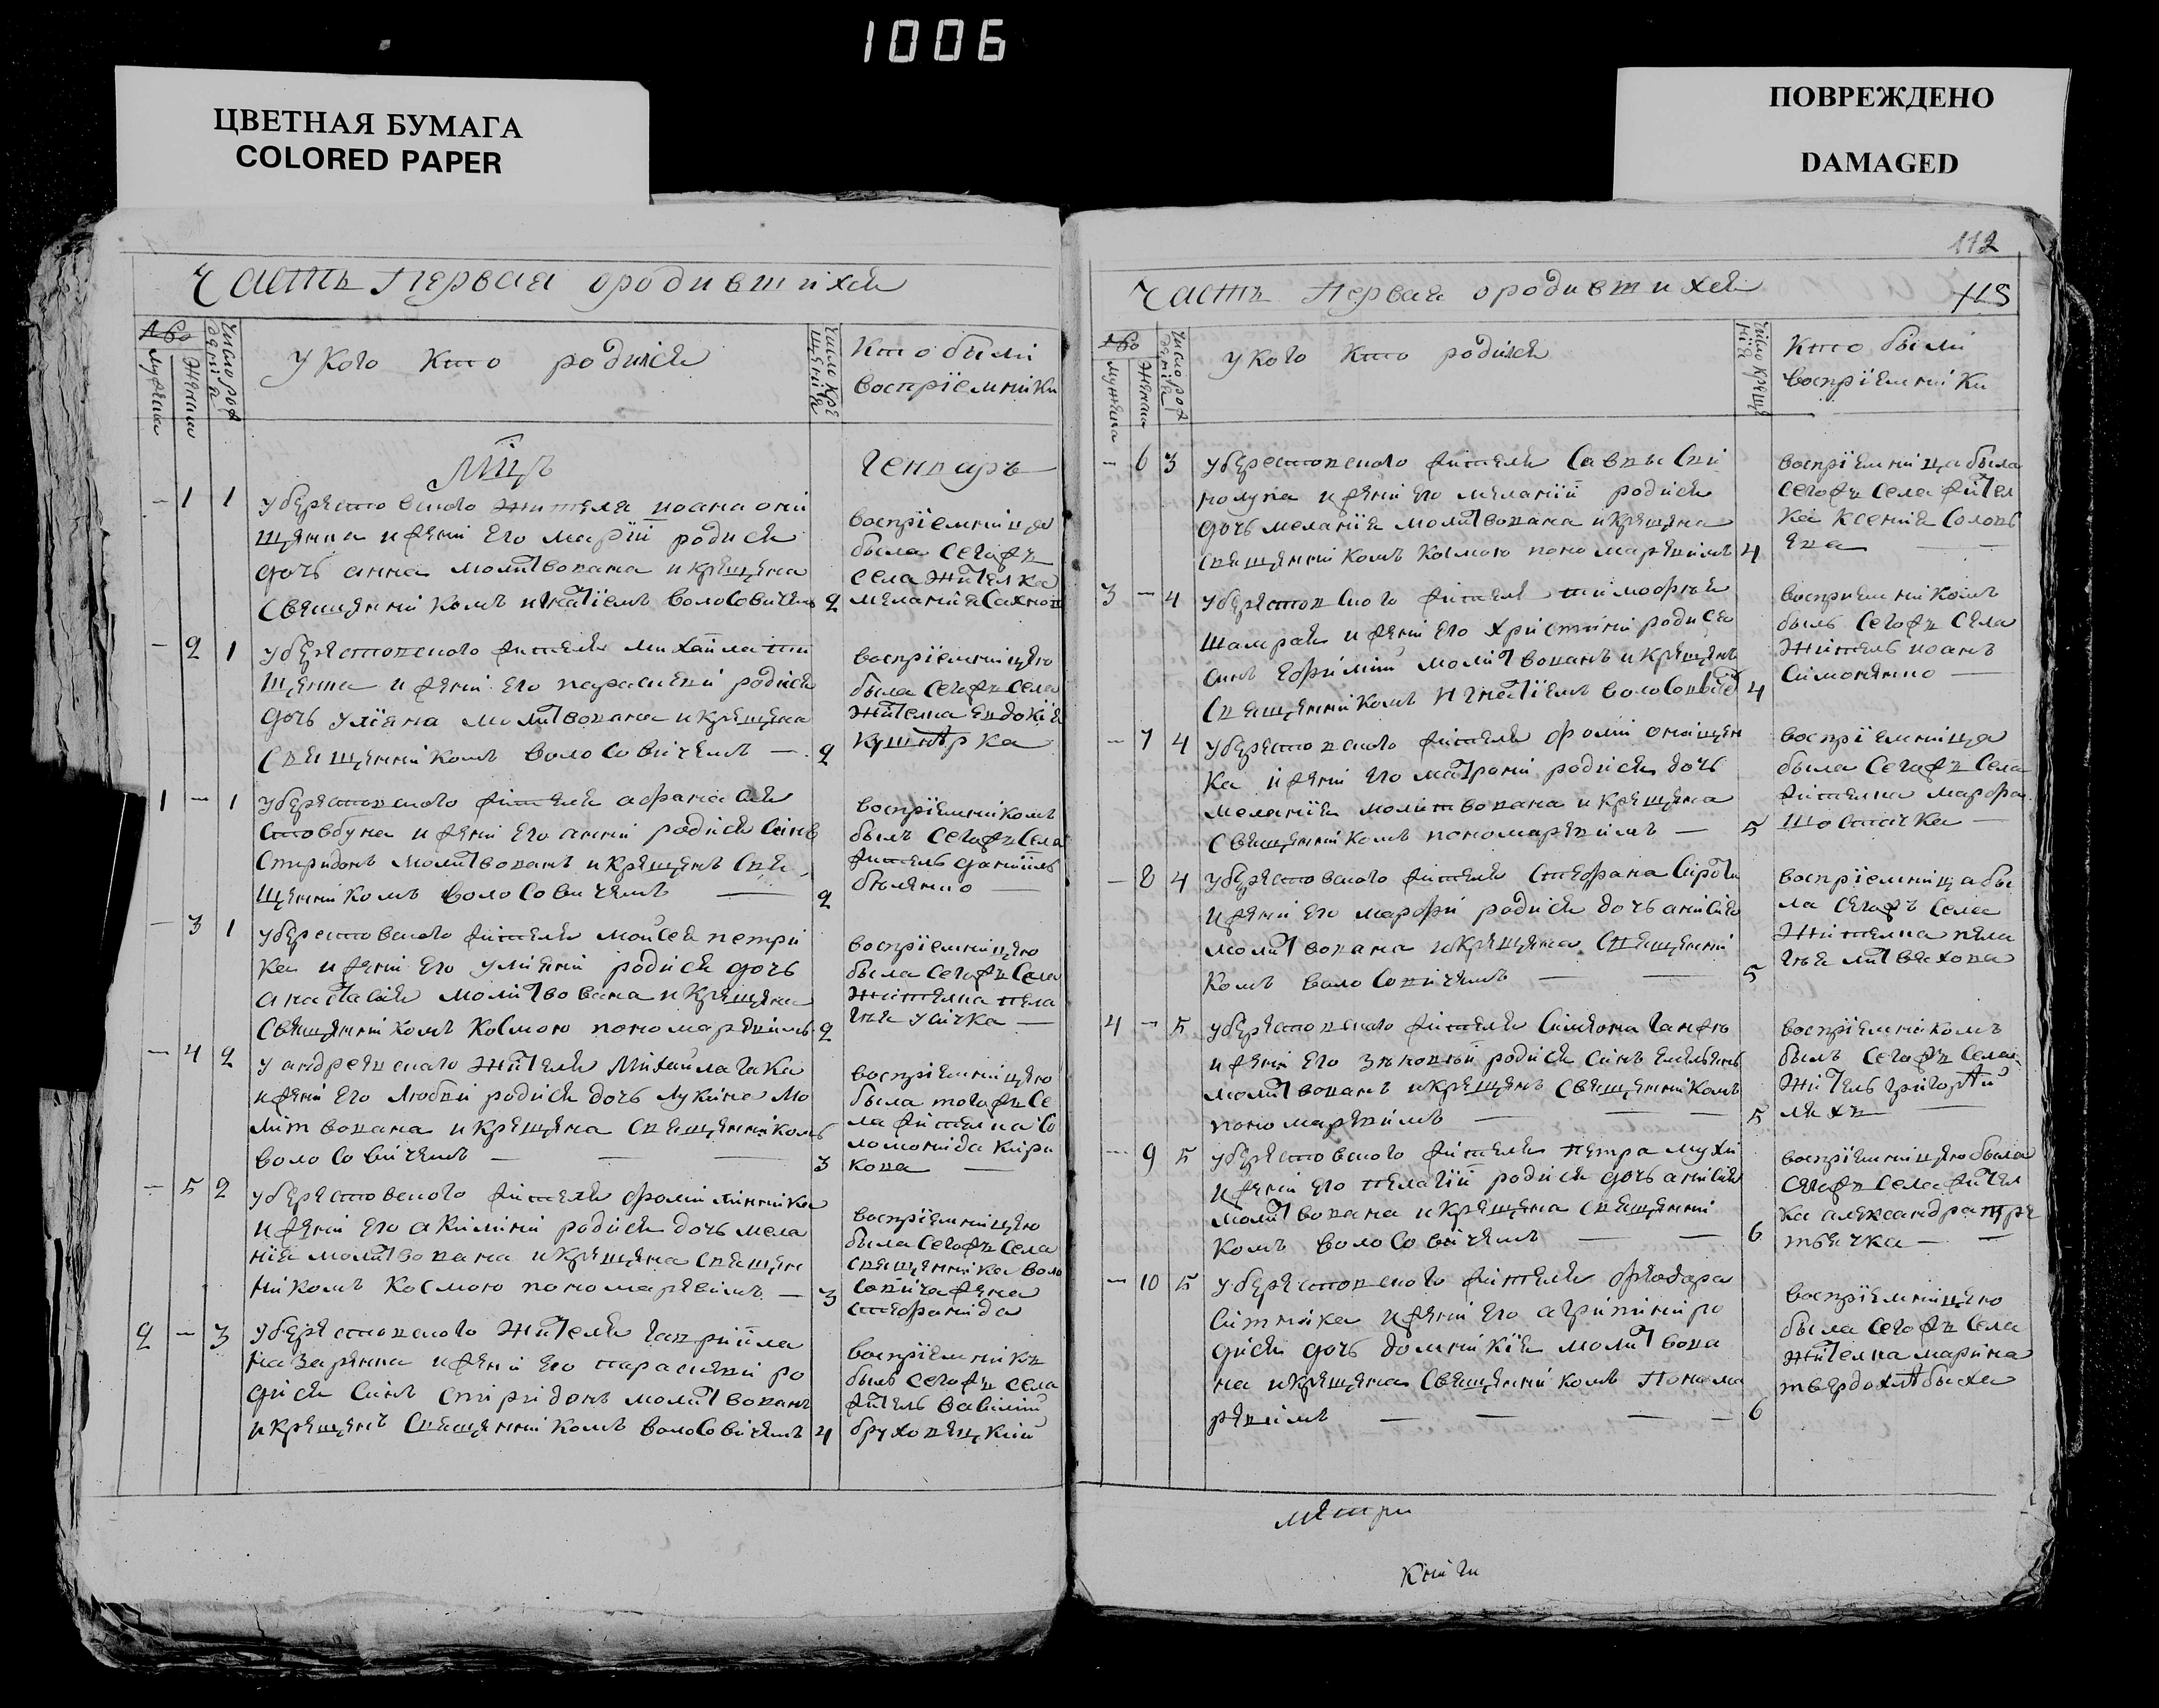 1006
ЦВЕТНАЯ БУМАГА
COLORED PAPER
ПОВРЕЖДЕНО
DAMAGED
Часть первая ородившихся
№
мужеска
женска
число рождения
Укого кто родился
число крещения
Кто были
восприемники
Мцъ Генваръ
- 1 1
Уберестовского жителя иоана они
щенка ижени его марїи родися
дочь анна молитвована икрещена
Священникомъ игнатїемъ волосовичемъ 2
воспрїемница
была сегожъ
села жителка
меланиѧ Сахнов
- 2 1
Уберестовского жителя михаила
щенка ижени его параскеви родися
дочь улїяна молитвована икрещена
Священникомъ волосовичемъ — 2
воспрїемницею
была сегожъ села
жителка евдокїя
кушнѣрка
1 - 1
Уберестовского жителя афанасия
Стовбуна ижени его анни родися Синъ
Спиридонъ молитвованъ икрещенъ Свя
щенникомъ волосовичемъ — 2
воспрїемникомъ
былъ сегожъ села
житель даниилъ
— 
- 3 1
Уберестовского жителя мойсея петри
ка ижени его улияни родися дочь
анастасия молитвована икрещена
Священникомъ Космою пономаревимъ 2
воспрїемницею
была сегожъ села
жителка пела
гея усичка —
- 4 2
У андреевского жителя Михаила гака
ижени его Любви родися дочь Лукия Мо
литвована икрещена Священникомъ
волосовичемъ — — — 3
воспрїемницею
была тогожъ се
ла жителка Со
ломонида кири
кова —
- 5 2
Уберестовского жителя фоми линника
ижени его акилини родися дочь мела
ния молитвована икрещена Священ
никомъ Космою пономаревимъ — 3
воспрїемницею
была сегожъ села
священника воло
совича жена
стефанида
2 - 3
Уберестовского жителя гавриила
назаренка ижени его параскеви ро
дися Синъ Спиридонъ молитвованъ
икрещенъ Священникомъ волосовичемъ 4
воспрїемникъ
былъ сегожъ села
житель василий
бруховецкий
112
115
Часть Первая ородившихся
№
мужеска
женска
число рождения
укого кто родился
число крещения
Кто были
воспрїемники
- 6 3
Уберестовского жителя Саввы Ски
ижени его меланїи родися
дочь меланїя молитвована икрещена
Священникомъ Космою пономаревимъ 4
воспрїемница была
сегожъ села жител
ка ксения Соловь
ева — —
3 - 4
Уберестовского жителя тимофея
Шамрая ижени его христини родися
синъ Ефимий молитвованъ икрещенъ
Священникомъ Игнатїемъ волосовичем 4
восприемникомъ
былъ сегожъ села
житель иоанъ
Симоненко —
- 7 4
Уберестовского жителя фоми онищен
ка ижени его матрони родися дочь
меланїя молитвована икрещена
Священникомъ пономаревимъ — 5
воспрїемница
была сегожъ села
жителка марфа
Шостачка —
- 8 4
Уберестовского жителя Стефана Сироти
ижени его марфи родися дочь анисия
молитвована икрещена Священни
комъ волосовичемъ — — 5
воспрїемница бы
ла сегожъ села
жителка пела
гея литвяхова
4 - 5
Уберестовского жителя Симеона ганжи
ижени его зиновїи родися Синъ емельянъ
молитвованъ икрещенъ Священникомъ
пономаревимъ — — — 5
воспрїемникомъ
былъ сегожъ села
житель григорѣй
ляхъ —
- 9 5
Уберестовского жителя Петра мухи
ижени его пелагїи родися дочь анисия
молитвована икрещена Священни
комъ волосовичемъ — — 6
воспрїемницею была
сегожъ села жител
ка александра тре
твячка — —
- 10 5
Уберестовского жителя феодора
Ситника ижени его агрипини ро
дися дочь домникїя молитвова
на икрещена Священникомъ Понома
ревимъ — — — — 6
воспрїемницею
была сегожъ села
жителка марина
твердохлѣбиха
метри
Книги